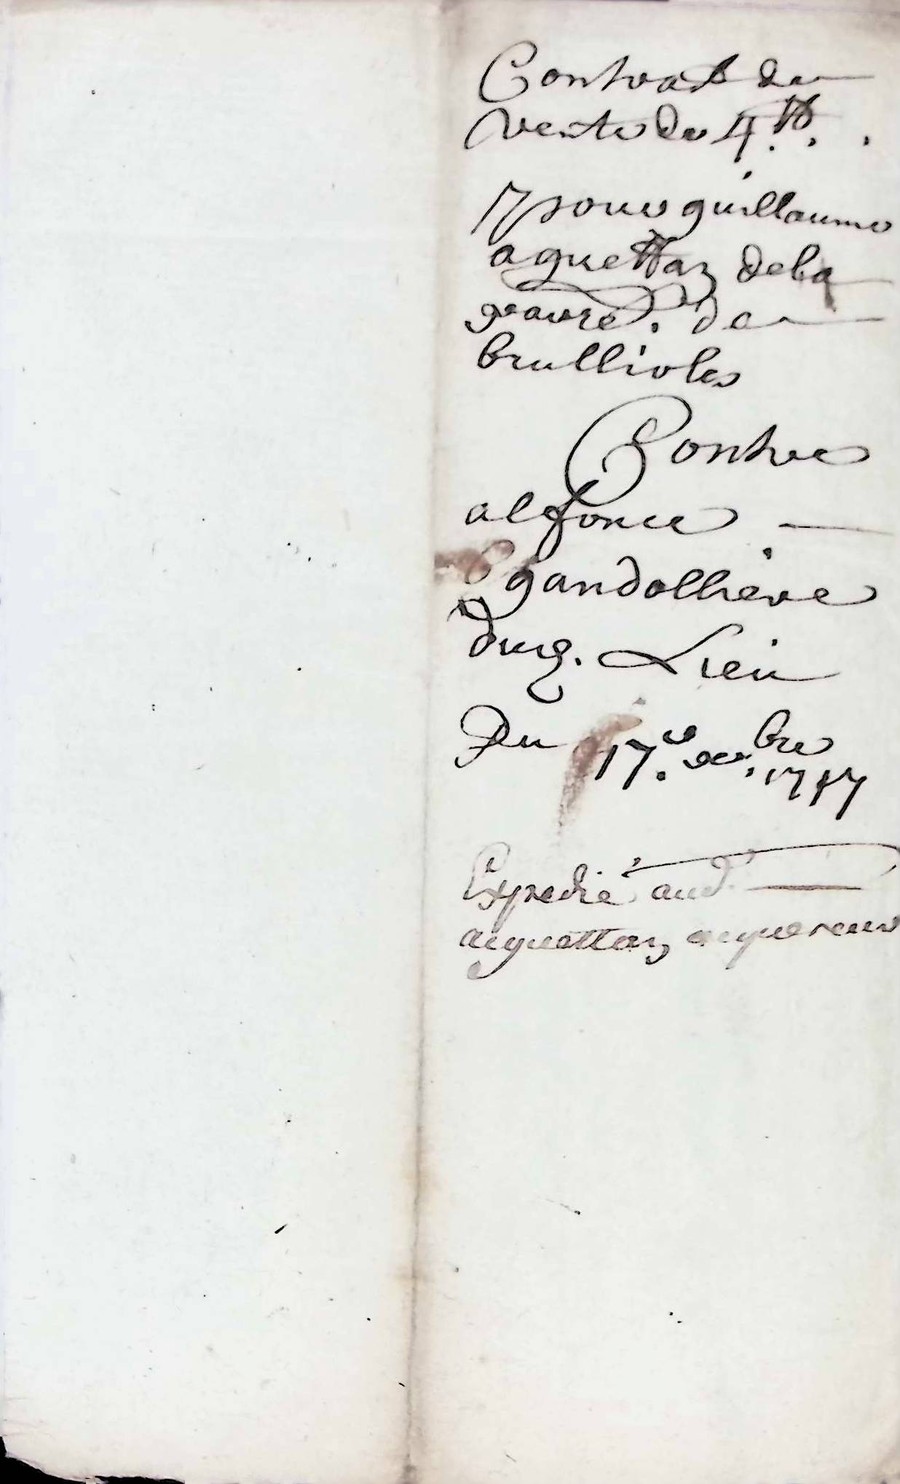 Contrat de
vente de 4.tt.
pour guillaume
aguettaz de la
gravre. de
brullioles
Contre
alfonce
gandolliere
dud. Lieu
Du 17.e xbre
Expedié aud.
aiguettaz acquereur